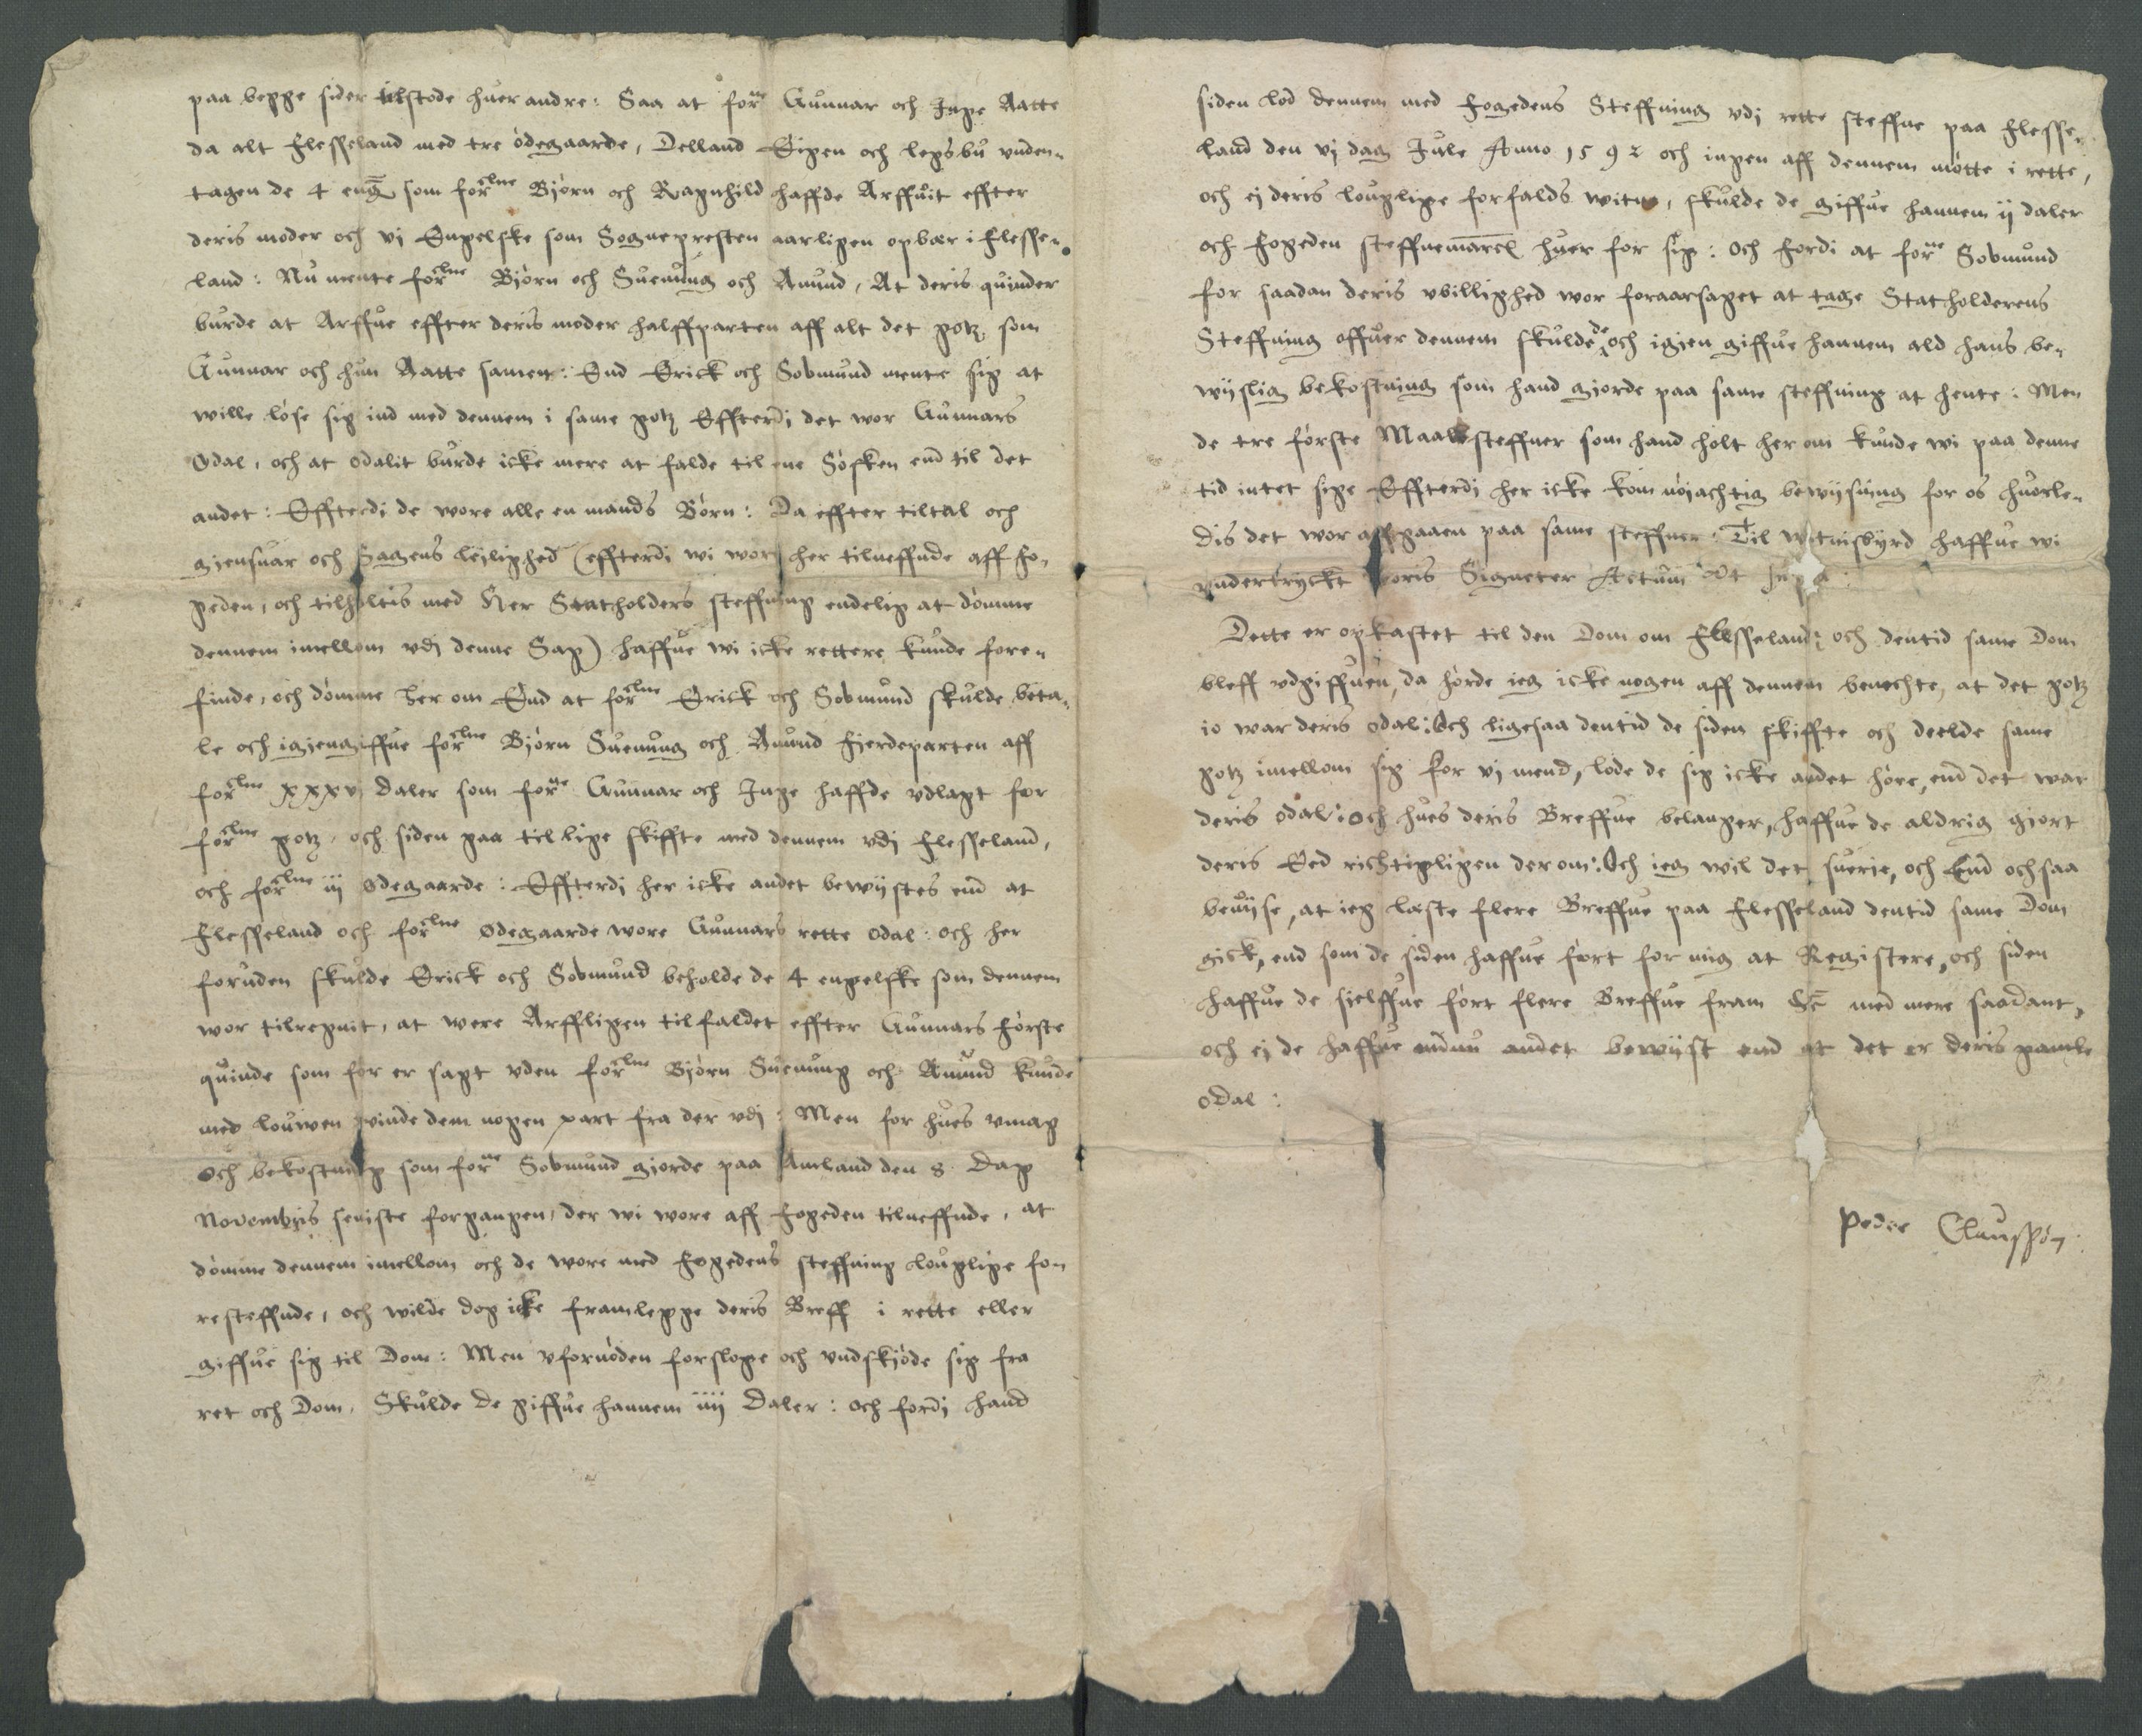 paa begge sider tilstode huer andre: Saa at forne Gunnar och Inge Aatte
da alt Flesseland med tre ødegaarde, Delland Eigen och legsbu vnden-
tagen de 4 eng. som forschne Biørn och Ragnhild haffde Arffuit effter
deris moder och vj Engelske som Sognepresten aarligen opbær i Flesse-
land: Nu mente forschne Biørn och Suenung och Amund, At deris quinder
burde at Arffue effter deris moder halffparten aff alt det gotz som
Gunnar och hun Aatte samen: End Erick och Sobmund mente sig at
wille løse sig ind med dennem i same gotz Effterdi det wor Gunnars
Odal, och at odalit burde icke mere at falde til ene Søsken end til det
andet: Effterdi de wore alle en mands Børn: Da effter tiltal och
giensuar och Sagens leilighed (effterdi wi wor her tilneffnde aff fo-
geden, och tilholtis med Her Statholders steffning endelig at dømme
dennem imellom vdj denne Sag) haffue wi icke rettere kunde fore-
finde, och dømme her om End at forschne Erick och Sobmund skulde beta-
le och igiengiffue forschne Biørn Suenung och Amund fierdeparten aff
forschne xxxvj daler som forne Gunnar och Inge haffde vdlagt for
forschne gotz, och siden gaa til lige skiffte med dennem vdj Flesseland,
och forschne iij ødegaarde: Effterdi her icke andet bewijstes end at
Flesseland och forschne ødegaarde wore Gunnars rette odal: och her
foruden skulde Erick och Sobmund beholde de 4 engelske som dennem
wor tilregnit, at were Arffligen tilfaldet effter Gunnars første
quinde som før er sagt vden forschne Biørn Suenung och Amund kunde
med louwen winde dem nogen part fra der vdj: Men for hues vmag
och bekostning som forne Sobmund giorde paa Amland den 8 dag
Novembris seniste forgangen, der wi wore aff fogeden tilneffnde, at
dømme dennem imellom och de wore med fogedens steffning louglige fo-
resteffnde, och wilde dog icke framlegge deris Breff i rette eller
giffue sig til Dom: Men vfornøden forsloge och vndskiøde sig fra
ret och Dom, Skulde de giffue hannem iiij Daler: och fordi hand
siden lod dennem med fogedens Steffning vdj rette steffne paa Flesse-
land den vj dag Jule Anno 1592 och ingen aff dennem møtte i rette,
och ej deris louglige forfalds witne, skulde de giffue hannem ij daler
och fogeden steffnemarcl huer for sig: Och fordi at forne Sobmund
for saadan deris vbillighed wor foraarsaget at tage Statholderens
Steffning offuer dennem skulde de och igien giffue hannem ald hans be-
wijslig bekostning som hand giorde paa same steffning at hente: Men
de tre første Maal steffner som hand holt her om kunde wi paa denne
tid intet sige Effterdi her icke kom nøjachtig bewijsning for os huorle-
dis det wor affgaaen paa same steffner: Til witnisbyrd haffue wi
vndertryckt woris Signeter Actum Vt supra:
Dette er opkastet til den Dom om Flesseland; och dentid same Dom
bleff vdgiffuen, da hørde ieg icke nogen aff dennem benechte, at det gotz
io war deris odal: Och ligesaa dentid de siden skiffte och deelde same
gotz imellom sig for vj mend, lode de sig icke andet høre, end det war
deris odal: och hues deris Breffue belanger, haffue de aldrig giort
deris Eed richtigligen der om: Och ieg wil det suerie, och End ochsaa
bewijse, at ieg læste flere Breffue paa Flesseland dentid same Dom
gick, end som de siden haffue ført for mig at Registere, och siden
haffue de sielffue ført flere Breffue fram Etc med mere saadant,
och ej de haffue endnu andet bewijst end at det er deris gamle
odal:
Peder Claussøn